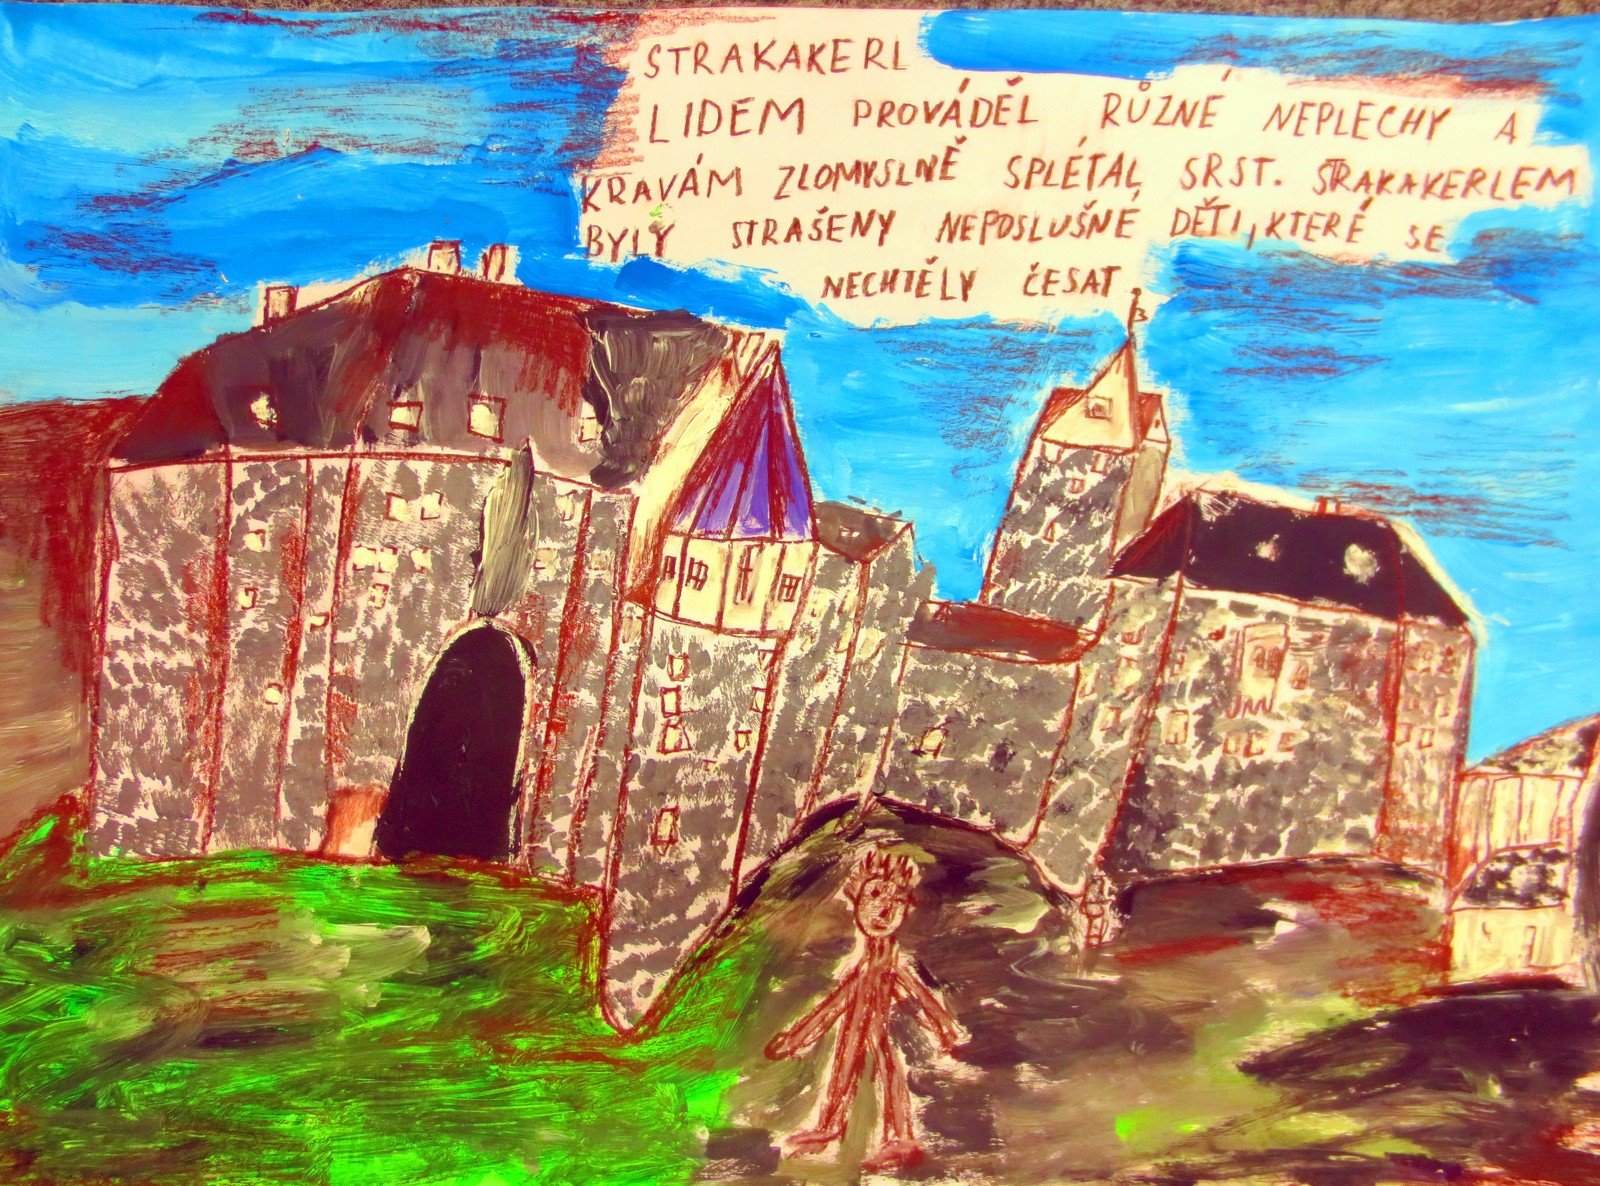 STRAKAKERL
LIDEM PROVÁDĚL RŮZNÉ NEPLECHY A
KRAVÁM ZLOMYSLNĚ SPLÉTAL SRST. STRAKAKERLEM
BYLY STRAŠENY NEPOSLUŠNÉ DĚTI, KTERÉ SE
NECHTĚLY ČESAT.